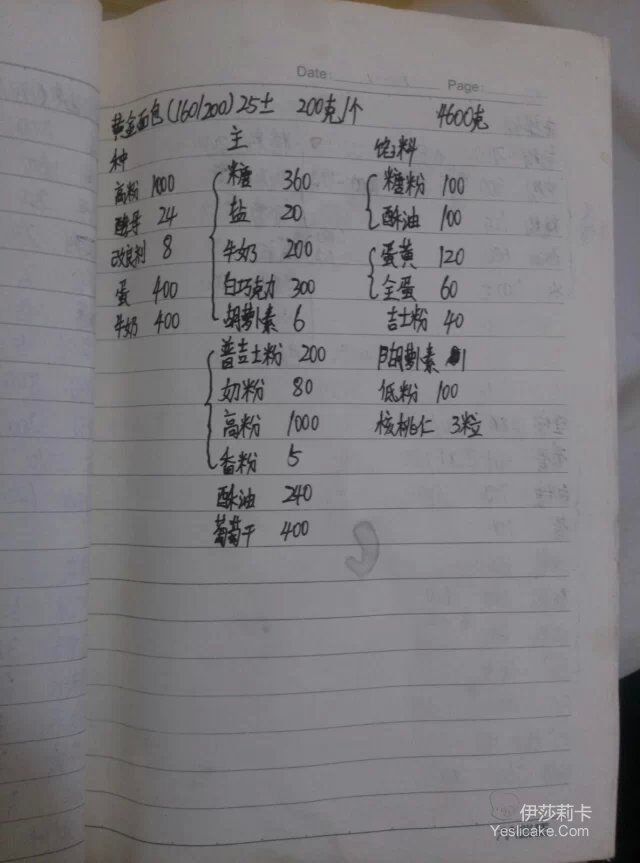 Date:
Page:
黄金面包(160/200)25± 200克/个 4600克
种 主 饱料
高粉 1000 糖 360 糖粉 100
酵母 24 盐 20 酥油 100
改良剂 8 牛奶 200 蛋黄 120
蛋 400 白巧克力 300 全蛋 60
牛奶 400 胡萝卜素 6 吉士粉 40
普吉士粉 200 胡萝卜素 1
奶粉 80 低粉 100
高粉 1000 核桃仁 3粒
香粉 5
酥油 240
葡萄干 400
伊莎莉卡
Yeslicake.Com